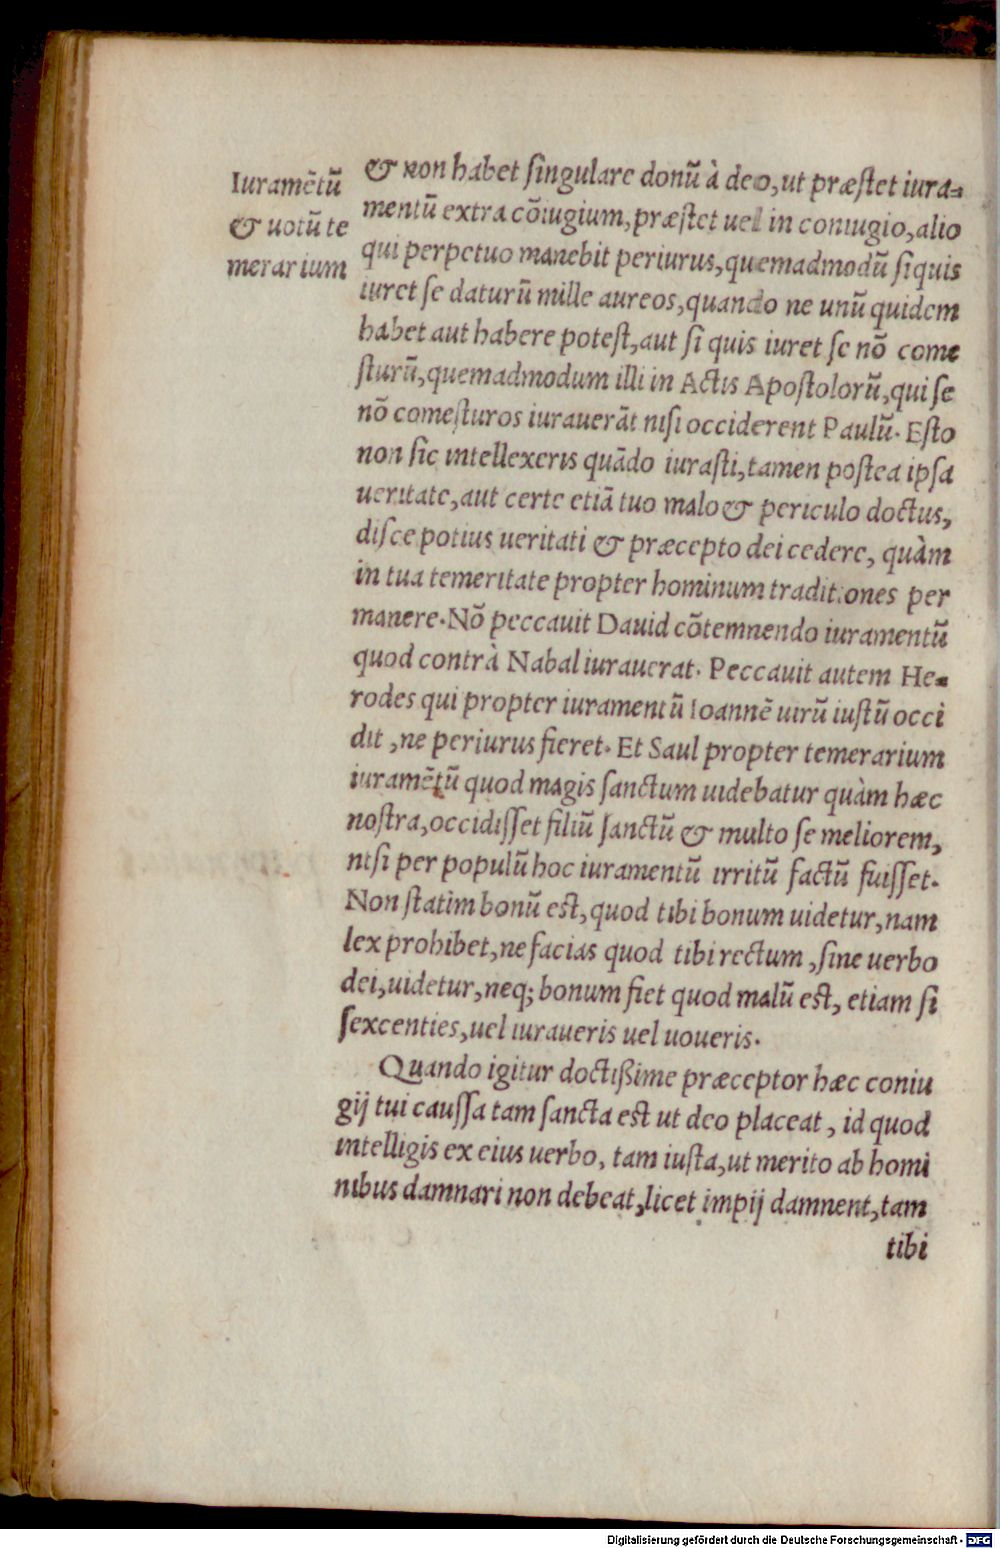 Iuramētū
& uotū te
merarium
& non habet ſingulare donū à deo, ut præſtet iura=
mentū extra cōiugium, præſtet uel in coniugio, alio
qui perpetuo manebit periurus, quemadmodū ſi quis
iuret ſe daturū mille aureos, quando ne unū quidem
habet aut habere poteſt, aut ſi quis iuret ſe nō come
ſturū, quemadmodum illi in Actis Apoſtolorū, qui ſe
nō comeſturos iurauerāt niſi occiderent Paulū. Eſto
non ſic intellexeris quādo iuraſti, tamen poſtea ipſa
ueritate, aut certe etiā tuo malo & periculo doctus,
diſce potius ueritati & præcepto dei cedere, quàm
in tua temeritate propter hominum traditiones per
manere. Nō peccauit Dauid cōtemnendo iuramentū
quod contrà Nabal iurauerat. Peccauit autem He=
rodes qui propter iuramentū Ioannē uirū iuſtū occi
dit, ne periurus fieret. Et Saul propter temerarium
iuramētū quod magis ſanctum uidebatur quàm hæc
noſtra, occidiſſet filiū ſanctū & multo ſe meliorem,
niſi per populū hoc iuramentū irritū factū fuiſſet.
Non ſtatim bonū eſt, quod tibi bonum uidetur, nam
lex prohibet, ne facias quod tibi rectum, ſine uerbo
dei, uidetur, neq; bonum fiet quod malū eſt, etiam ſi
ſexcenties, uel iuraueris uel uoueris.
Quando igitur doctißime præceptor hæc coniu
gij tui cauſſa tam ſancta eſt ut deo placeat, id quod
intelligis ex eius uerbo, tam iuſta, ut merito ab homi
nibus damnari non debeat, licet impij damnent, tam
tibi
Digitalisierung gefördert durch die Deutsche Forschungsgemeinschaft - DFG